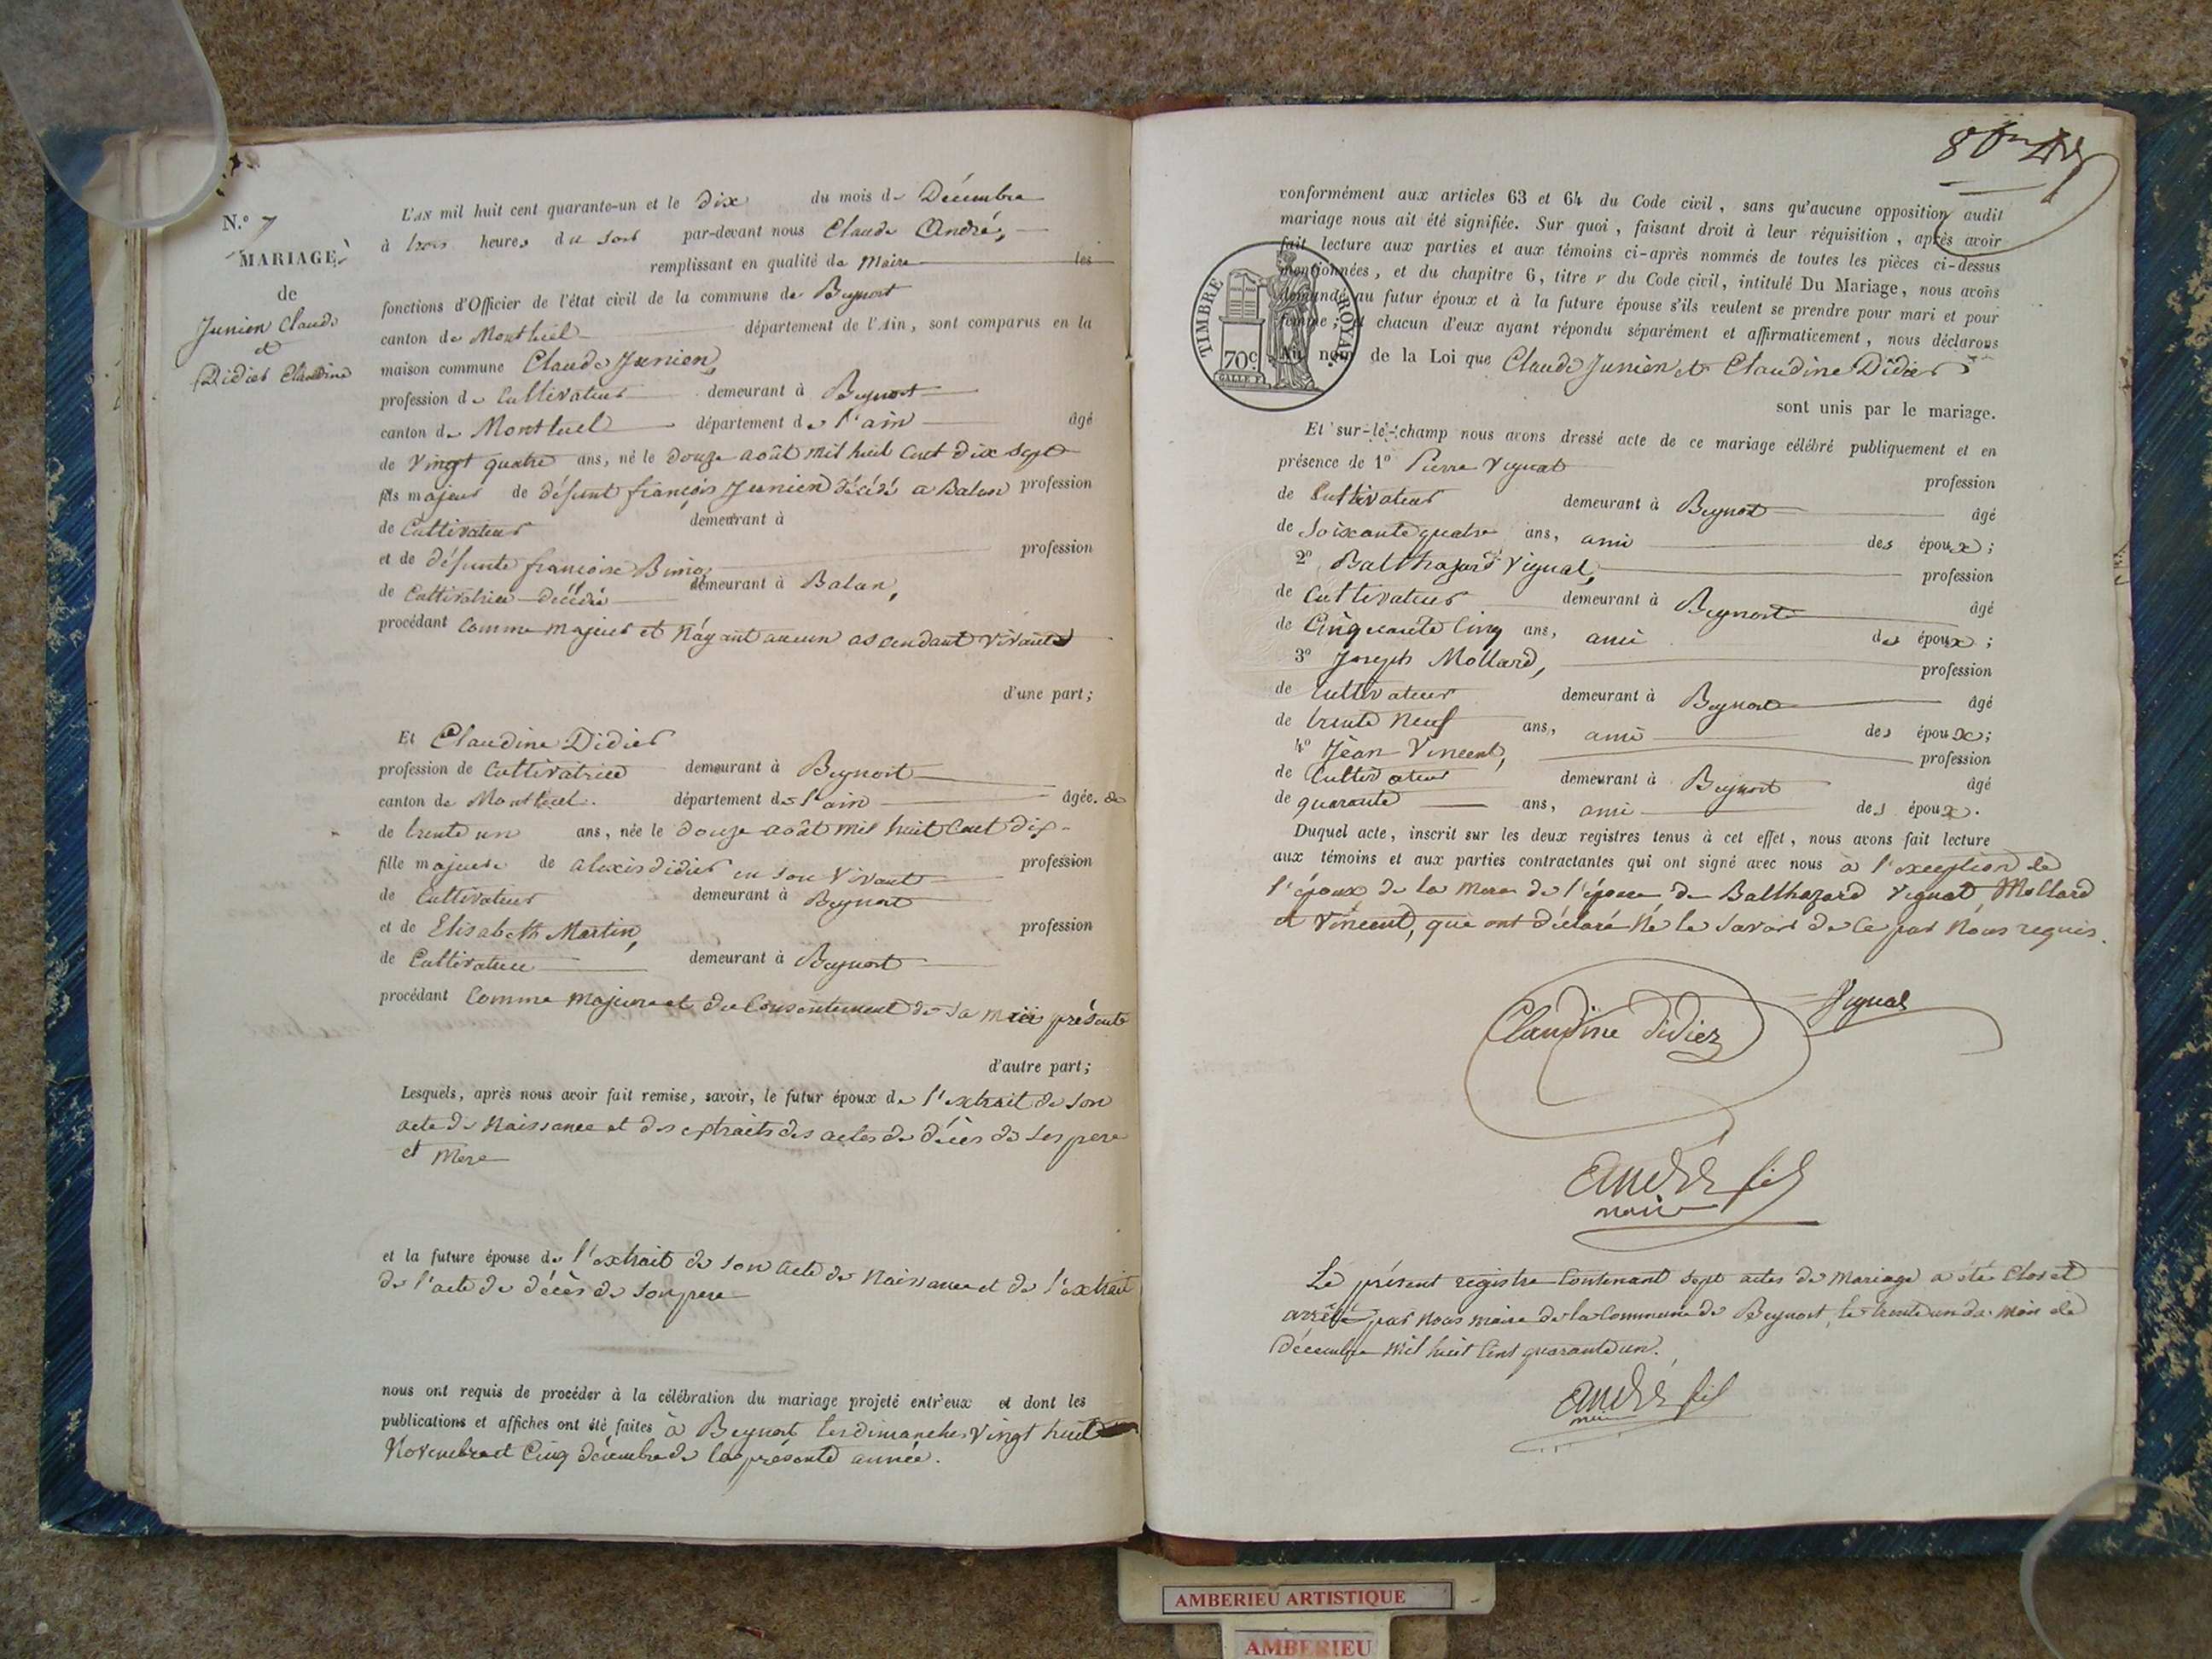 N.º 7
MARIAGE
de
Junien Claude
et
Didier Claudine
L'AN mil huit cent quarante-un et le dix du mois de Décembre
à trois heures du soir par-devant nous Claude André,
remplissant en qualité de Maire les
fonctions d'Officier de l'état civil de la commune de Beynost
canton de Montluel département de l'Ain, sont comparus en la
maison commune Claude Junien,
profession de Cultivateur demeurant à Beynost
canton de Montluel département de l'ain âgé
de vingt quatre ans, né le douze août mil huit cent dix sept
fils majeur de défunt françois Junien décédé a Balan profession
de Cultivateur demeurant à
et de défunte françoise profession
de Cultivatrice décédée demeurant à Balan,
procédant comme majeur et n'ayant aucun ascendant vivant
d'une part;
Et Claudine Didier
profession de Cultivatrice demeurant à Beynost
canton de Montluel département de l'ain âgée. de
de trente un ans, née le douze août mil huit cent dix
fille majeure de alexis didier en son vivant profession
de Cultivateur demeurant à Beynost
et de Elisabeth Martin, profession
de Cultivatrice demeurant à Beynost
procédant comme majeure et du consentement de sa mère présente
d'autre part;
Lesquels, après nous avoir fait remise, savoir, le futur époux de l'extrait de son
acte de Naissance et des extraits des actes de décès de ses pere
et Mere
et la future épouse de l'extrait de son acte de Naissance et de l'extrait
de l'acte de décès de son pere
nous ont requis de procéder à la célébration du mariage projeté entr'eux et dont les
publications et affiches ont été faites à Beynost les dimanches vingt huit
Novembre et Cinq décembre de la présente année.
conformément aux articles 63 et 64 du Code civil, sans qu'aucune opposition audit
mariage nous ait été signifiée. Sur quoi, faisant droit à leur réquisition, après avoir
fait lecture aux parties et aux témoins ci-après nommés de toutes les pièces ci-dessus
mentionnées, et du chapitre 6, titre v du Code civil, intitulé Du Mariage, nous avons
demandé au futur époux et à la future épouse s'ils veulent se prendre pour mari et pour
femme; et chacun d'eux ayant répondu séparément et affirmativement, nous déclarons
Au nom de la Loi que Claude Junien et Claudine Didier
sont unis par le mariage.
TIMBRE ROYAL
70c.
Et sur-le-champ nous avons dressé acte de ce mariage célébré publiquement et en
présence de 1º Pierre Vignat profession
de Cultivateur demeurant à Beynost âgé
de soixante quatre ans, ami des époux;
2º Balthazard Vignat, profession
de Cultivateur demeurant à Beynost âgé
de Cinquante Cinq ans, ami des époux;
3º Joseph Mollard, profession
de Cultivateur demeurant à Beynost âgé
de trente neuf ans, ami des époux;
4º Jean Vincent, profession
de Cultivateur demeurant à Beynost âgé
de quarante ans, ami des époux.
Duquel acte, inscrit sur les deux registres tenus à cet effet, nous avons fait lecture
aux témoins et aux parties contractantes qui ont signé avec nous à l'exception de
l'époux de la Mere de l'épouse, de Balthazard Vignat, Mollard
et Vincent, que ont déclaré Né le savoir de ce par Nous requis.
Claudine didier Vignat
André fils
maire
Le présent registre contenant sept actes de Mariage a été clos et
arrêté par nous maire de la commune de Beynost, le trente un du mois de
décembre mil huit cent quarante un.
André fils
maire
AMBERIEU ARTISTIQUE
AMBERIEU